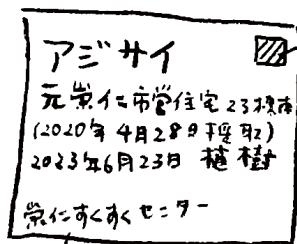 アジサイ
元崇仁市営住宅23棟南
(2020年4月28日採取)
2023年6月23日 植樹
崇仁すくすくセンター